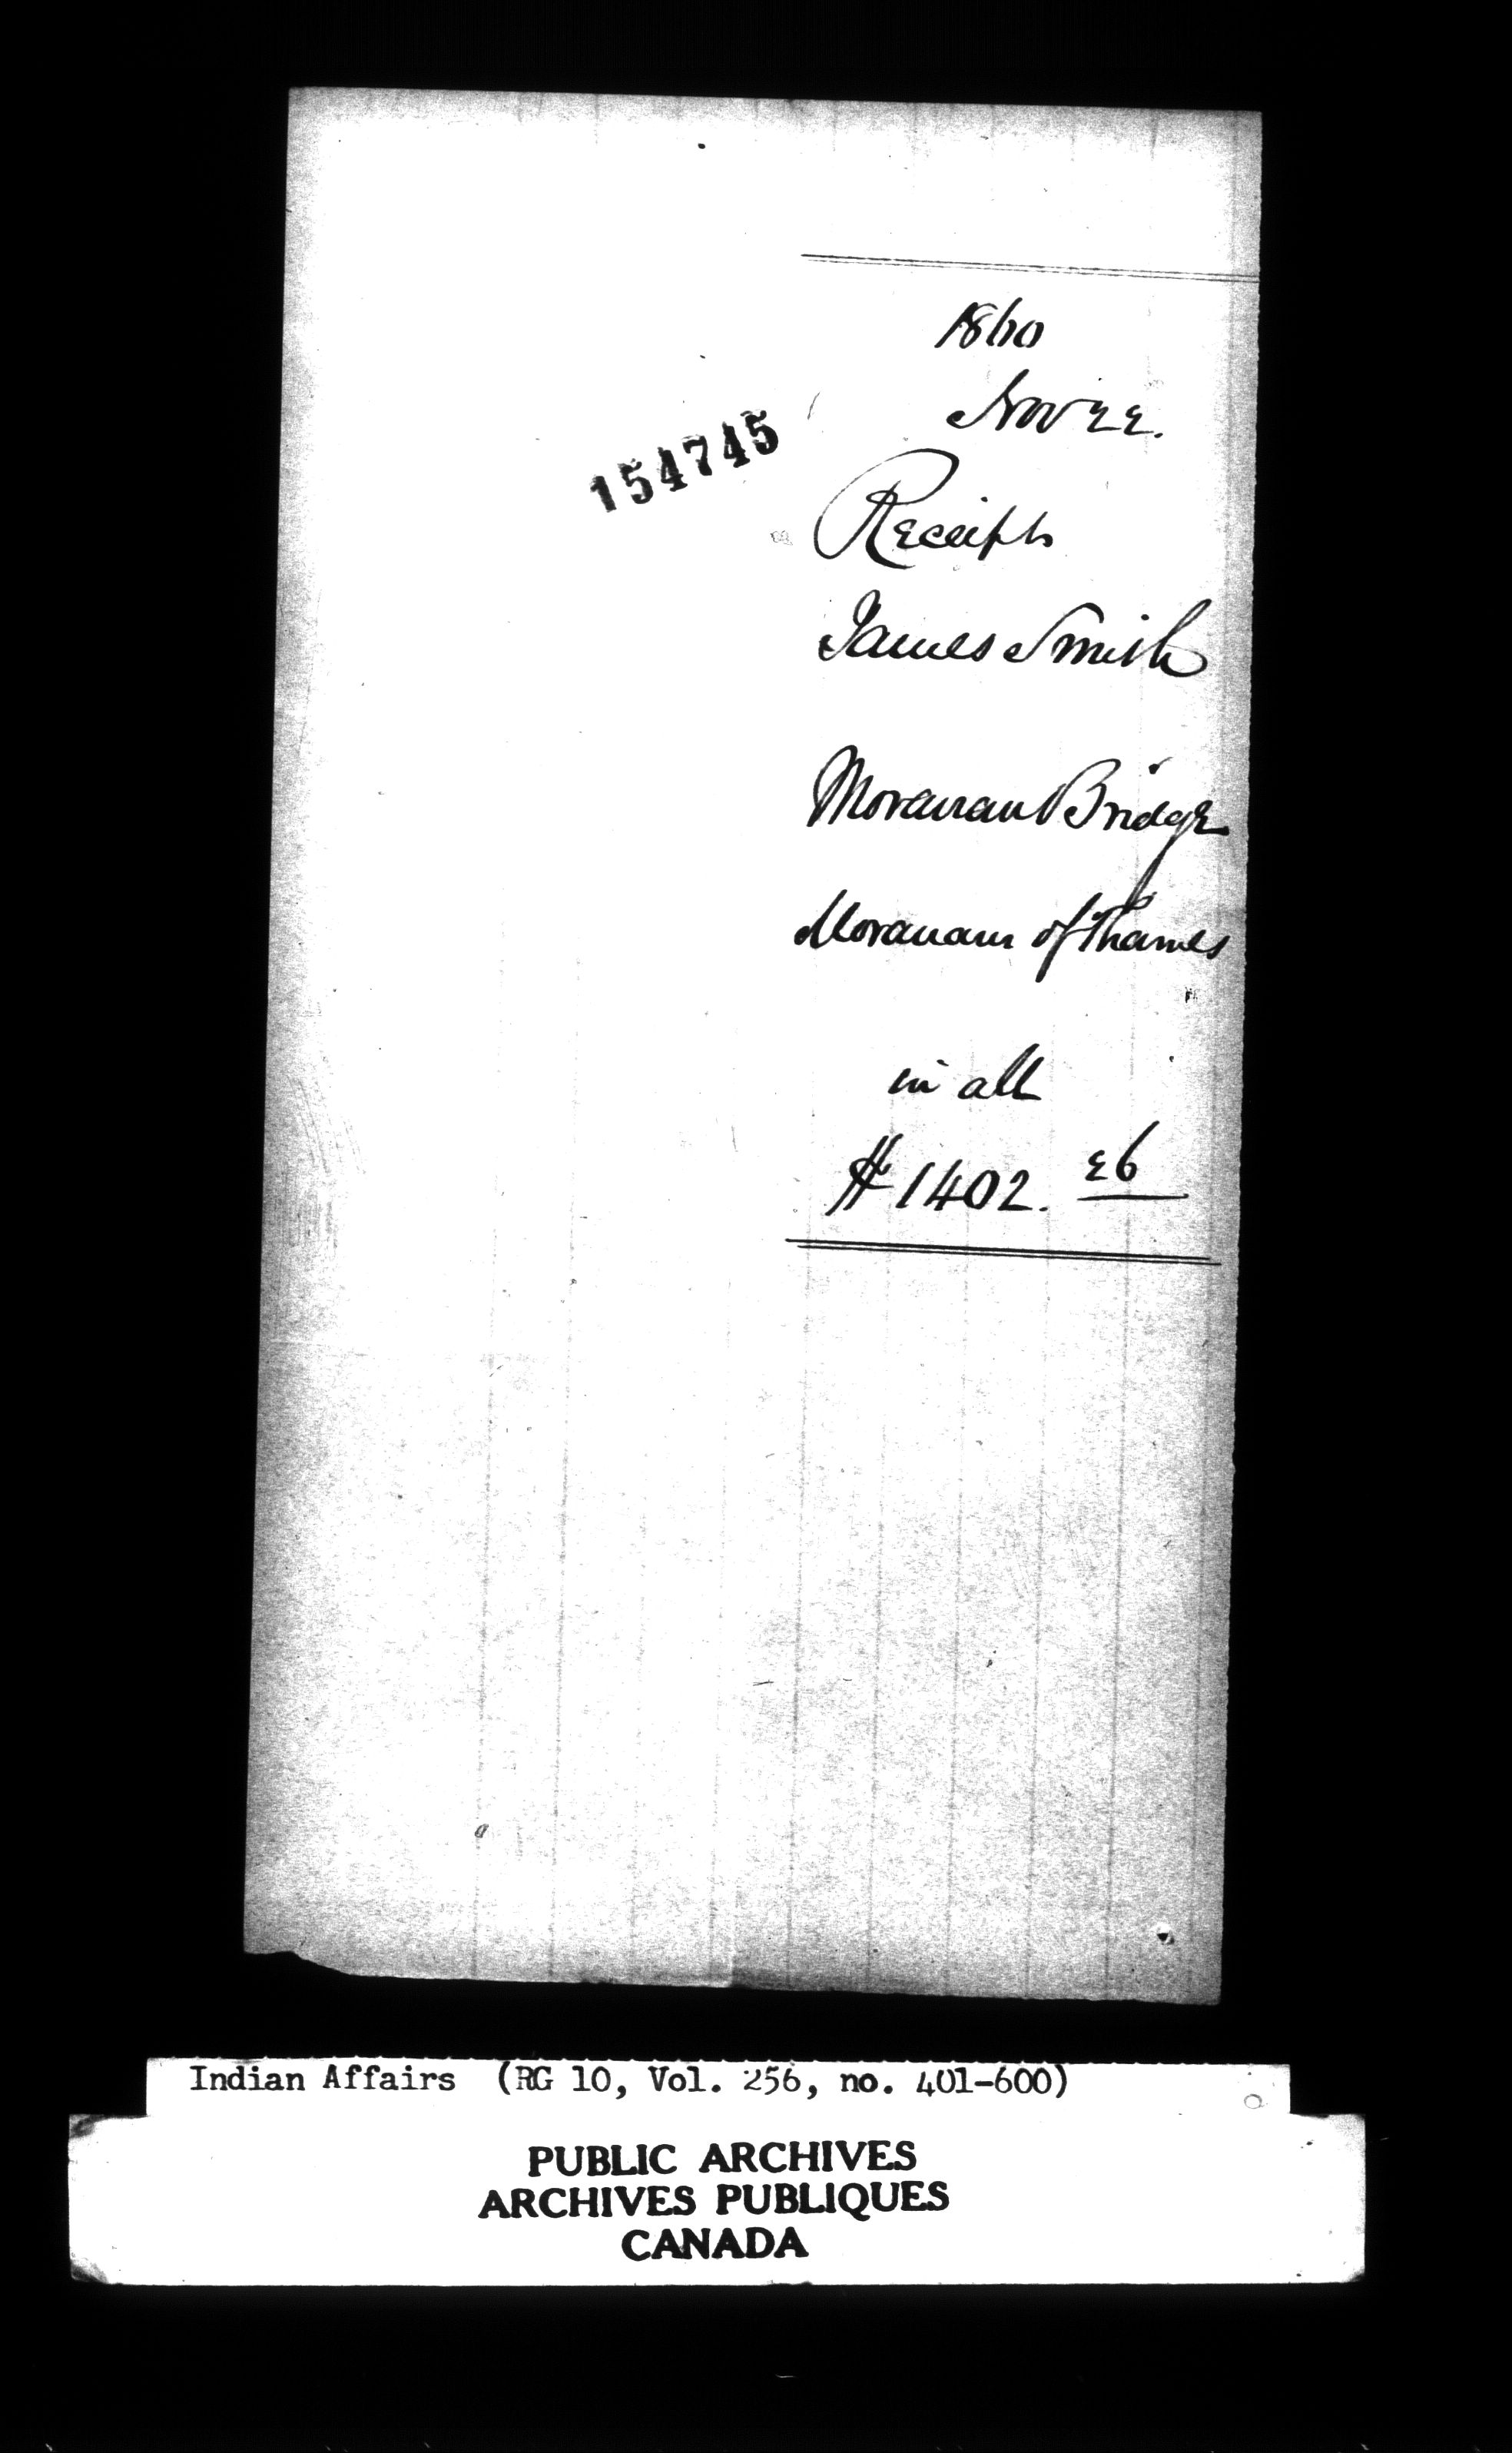 1860
Nov 22.
154745
Receipts
James Smith
Moravian Bridge
Moravians of Thames
in all
$1402. 26
Indian Affairs (RG 10, Vol. 256, no. 401-600)
PUBLIC ARCHIVES
ARCHIVES PUBLIQUES
CANADA